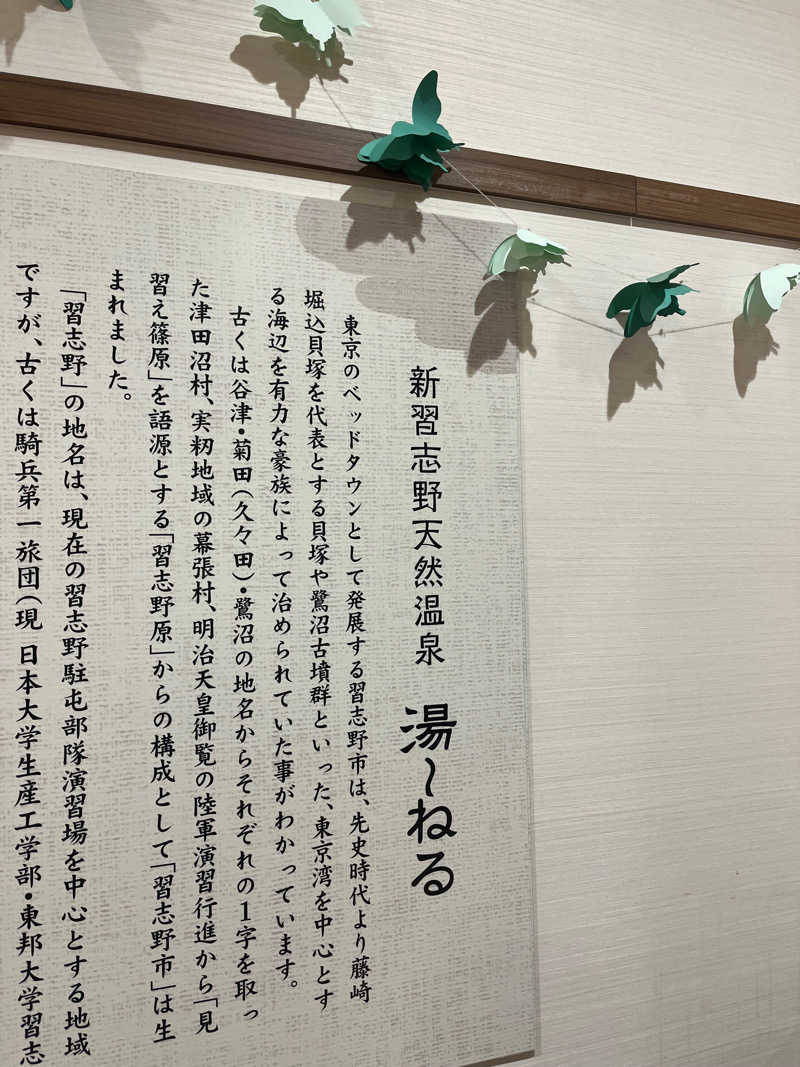 新習志野天然温泉 湯〜ねる
東京のベッドタウンとして発展する習志野市は、先史時代より藤崎
堀込貝塚を代表とする貝塚や鷺沼古墳群といった、東京湾を中心とす
る海辺を有力な豪族によって治められていた事がわかっています。
古くは谷津・菊田(久々田)・鷺沼の地名からそれぞれの1字を取っ
た津田沼村、実籾地域の幕張村、明治天皇御覧の陸軍演習行進から「見
習え篠原」を語源とする「習志野原」からの構成として「習志野市」は生
まれました。
「習志野」の地名は、現在の習志野駐屯部隊演習場を中心とする地域
ですが、古くは騎兵第一旅団(現 日本大学生産工学部・東邦大学習志